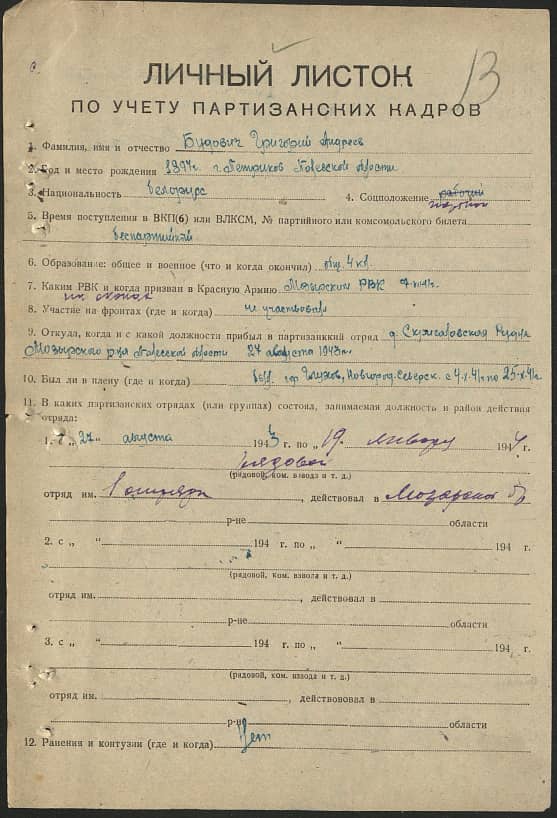 13
ЛИЧНЫЙ ЛИСТОК
ПО УЧЕТУ ПАРТИЗАНСКИХ КАДРОВ
1. Фамилия, имя и отчество Будович Григорий Андреев
2. Год и место рождения 1894г. г. Петриков Полесской области
3. Национальность белорус 4. Соцположение рабочий
5. Время поступления в ВКП(б) или ВЛКСМ, № партийного или комсомольского билета
беспартийный
6. Образование: общее и военное (что и когда окончил) общ. 4 кл.
7. Каким РВК и когда призван в Красную Армию Мозырским РВК
8. Участие на фронтах (где и когда) не участвовал
9. Откуда, когда и с какой должности прибыл в партизанский отряд д. Рудня
Мозырского р-на Полесской области 27 августа 1943 г.
10. Был ли в плену (где и когда) был, Новгород-Северск. с 4-х-41г по 25-х-41г
11. В каких партизанских отрядах (или группах) состоял, занимаемая должность и район действия
отряда:
1. с „ 27 “ августа 1943 г. по „ 19 “ января 1944 г.
рядовой
(рядовой, ком. взвода и т. д.)
отряд им. , действовал в
р-не области
2. с „ “ 194 г. по „ “ 194 г.
(рядовой, ком. взвода и т. д.)
отряд им. , действовал в
р-не области
3. с „ “ 194 г. по „ “ 194 г.
(рядовой, ком. взвода и т. д.)
отряд им. , действовал в
р-не области
12. Ранения и контузии (где и когда) Нет